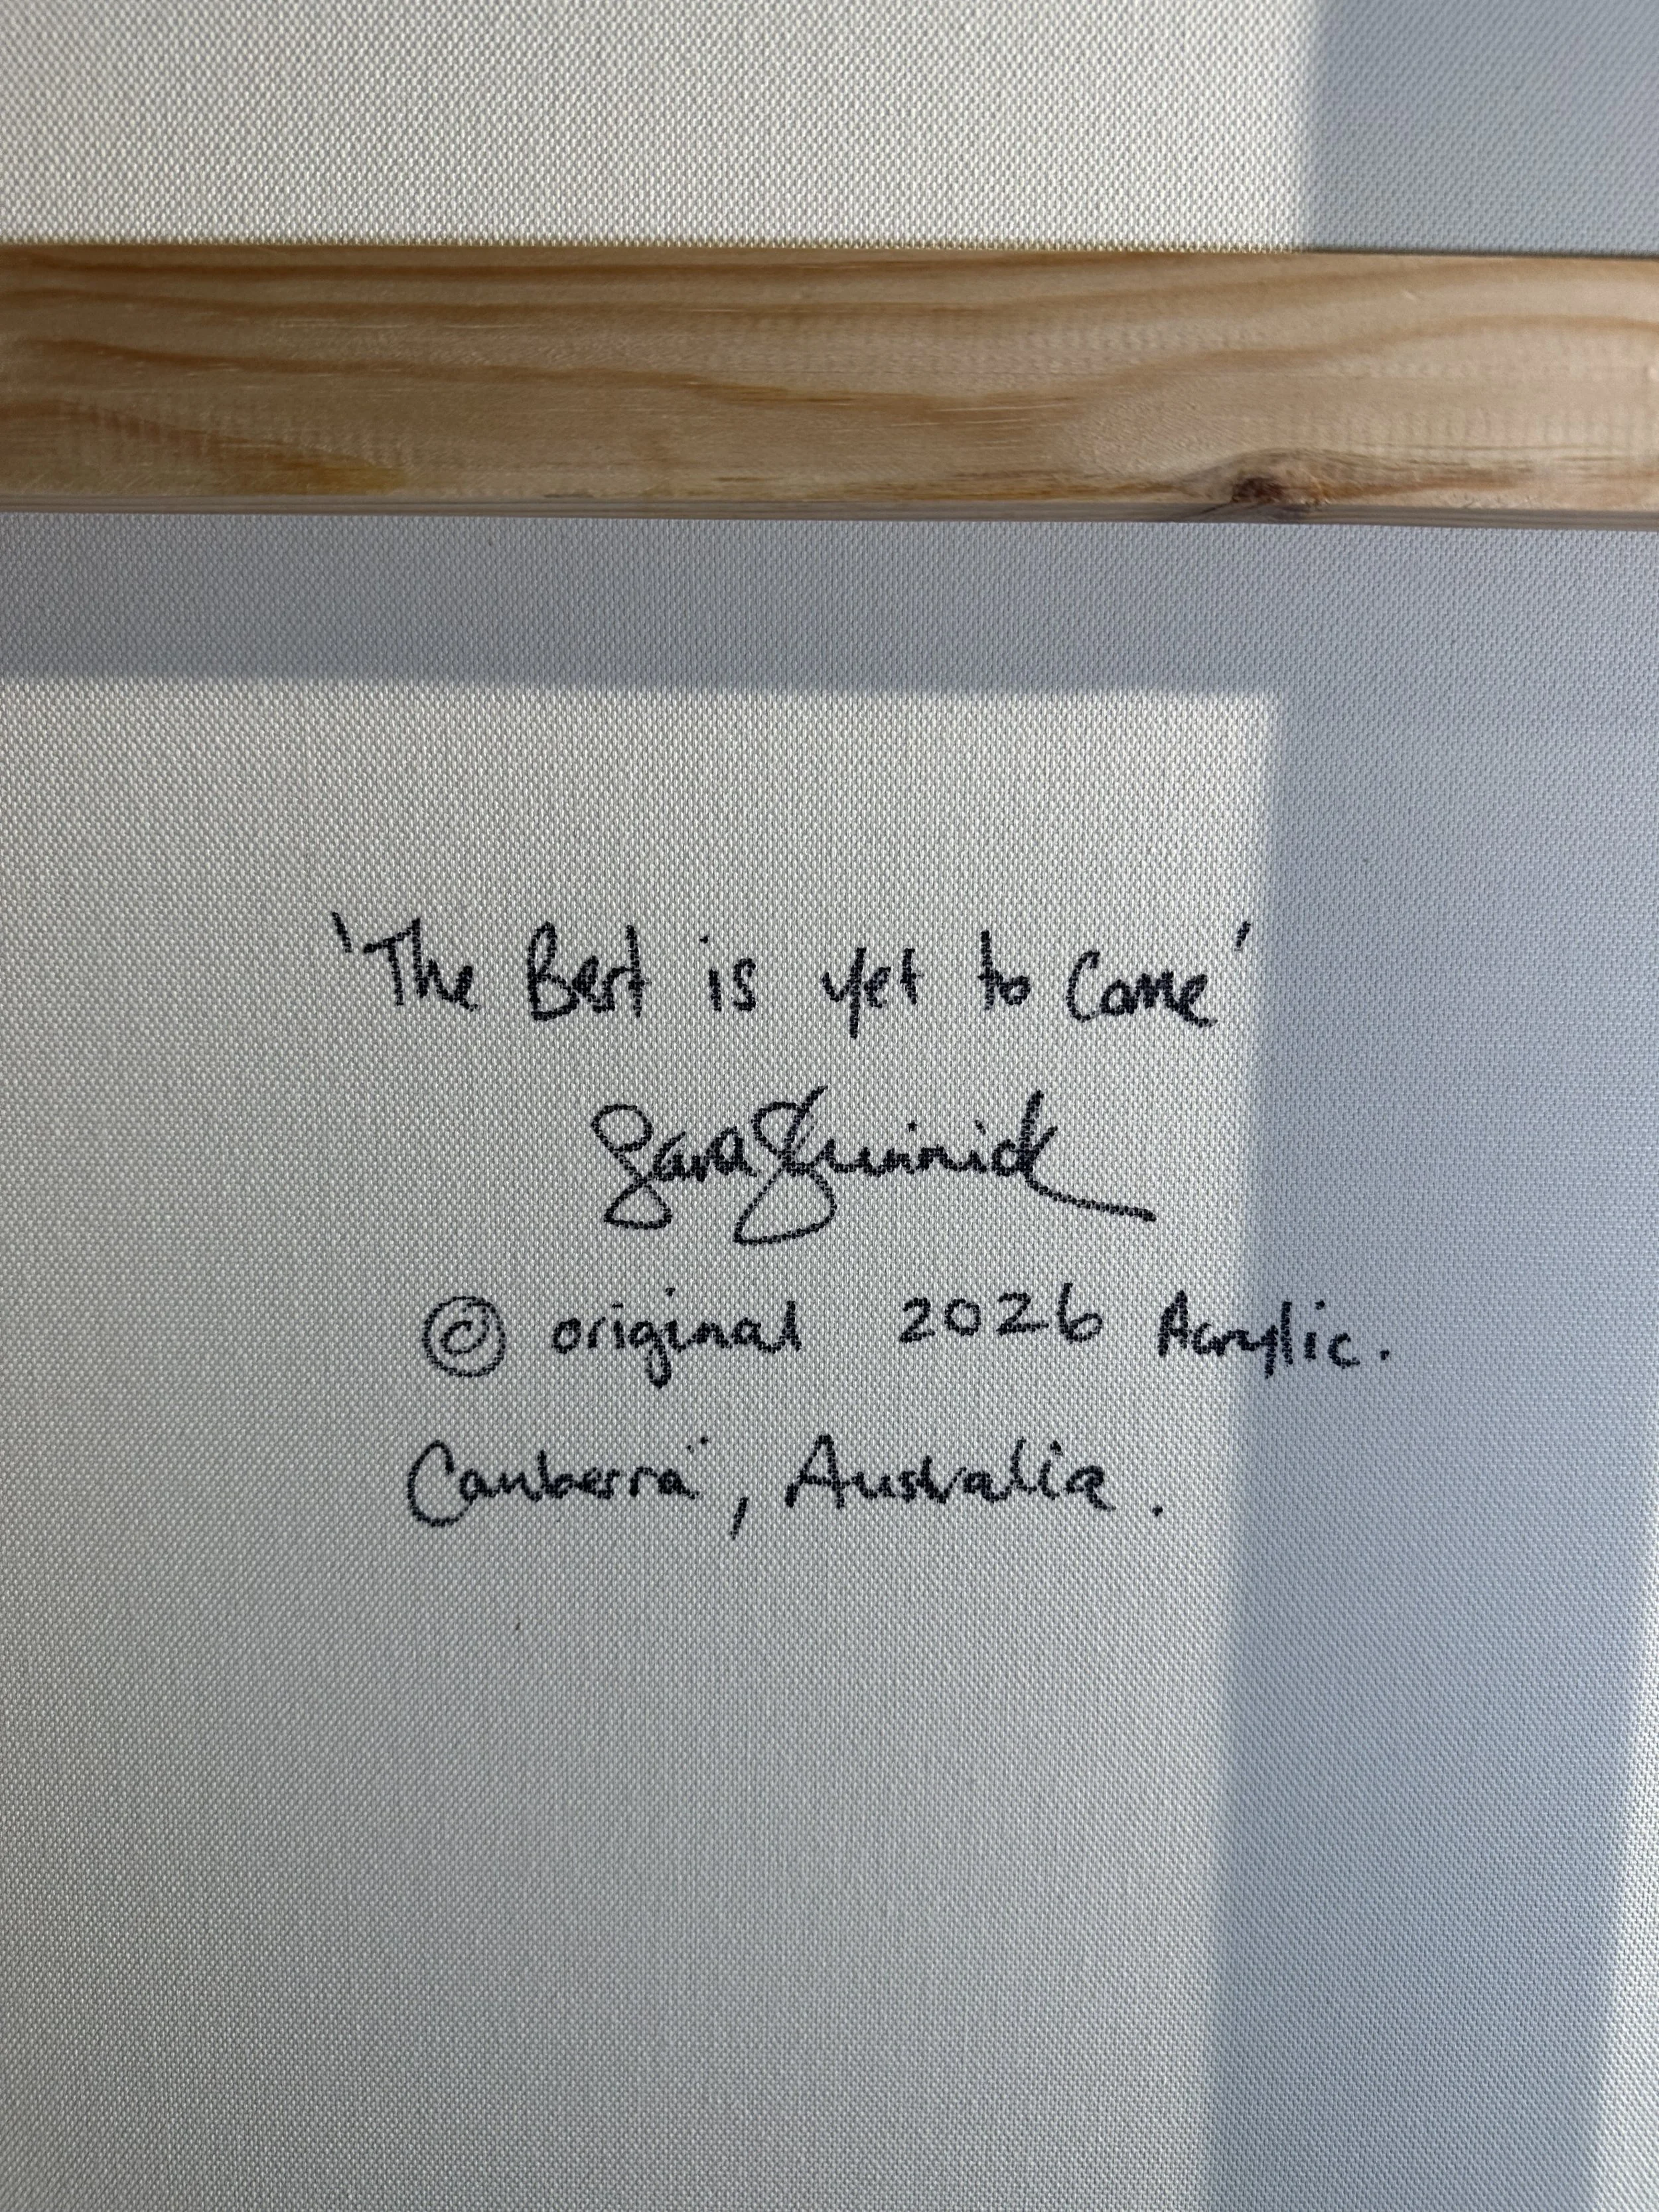 'The Best is yet to Come'
Sara
© original 2026 Acrylic.
Canberra, Australia.